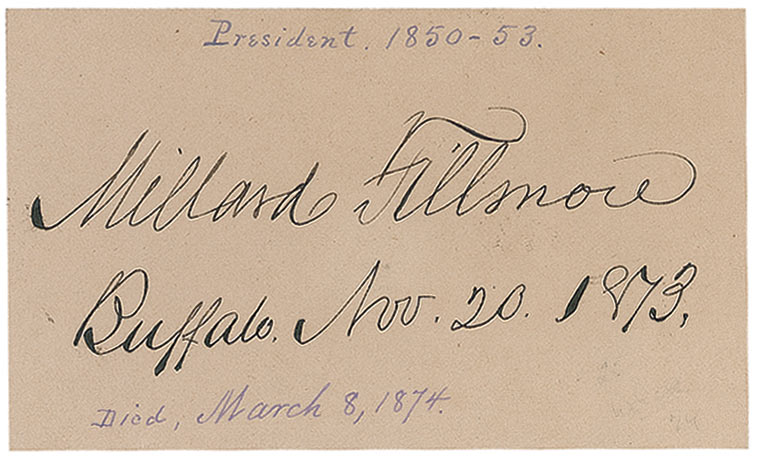 President. 1850-53.
Millard Fillmore
Buffalo. Nov. 20. 1873.
Died, March 8, 1874.